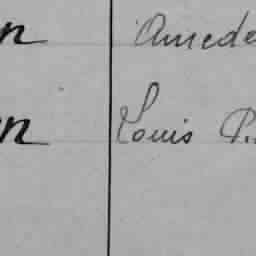 n Amede
n Louis P.